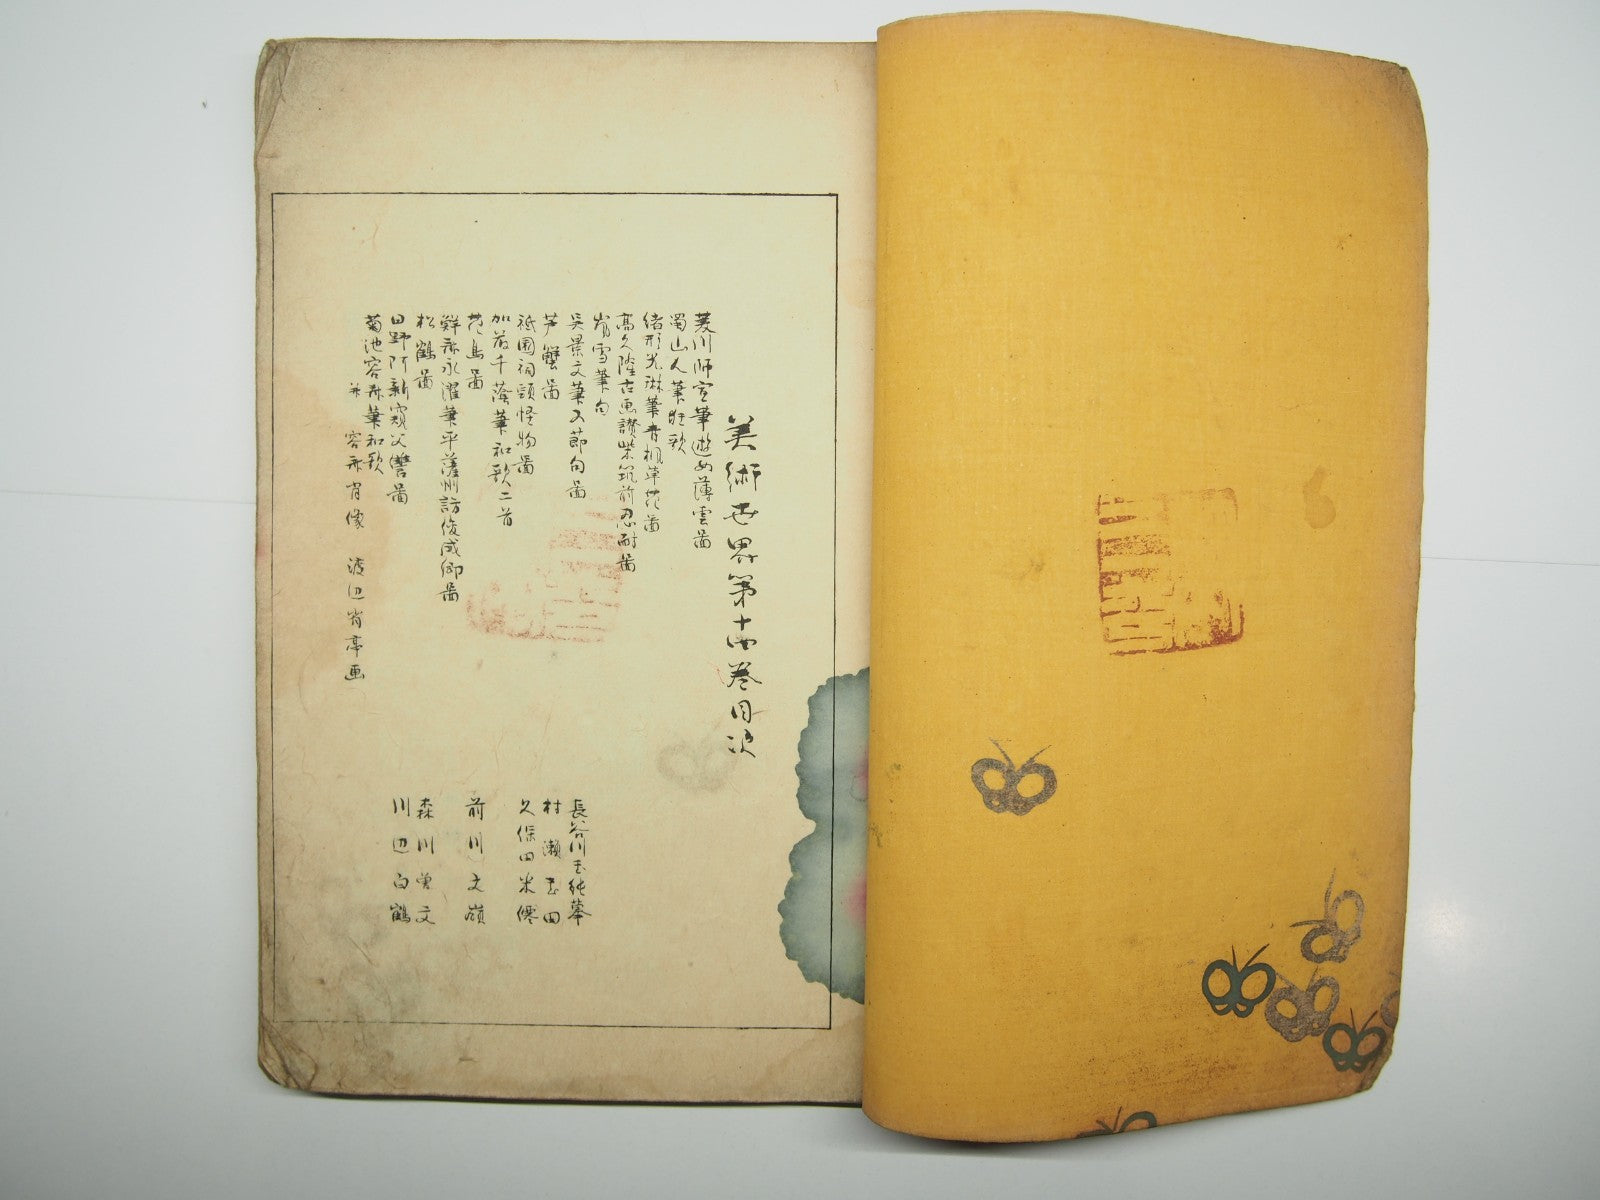 美術世界第十四巻目次
菱川師宣筆遊女薄雲圖
蜀山人筆狂歌
緒形光琳筆青楓草花圖
高久隆古画讃柴筑前忍耐圖
宵雪筆句
呉景文筆又節句圖 長谷川玉純摹
芦蟹圖 村瀬玉田
祗園祠頭怪物圖 久保田米僊
加茂千蔭筆和歌二首
花鳥圖 前川文嶺
鮮斎永濯筆平薩州訪俊成卿圖
松鶴圖 森川曽文
日野阿新窺父讐圖 川辺白鶴
菊池容斎筆和歌
并 容斎肖像 渡辺省亭画